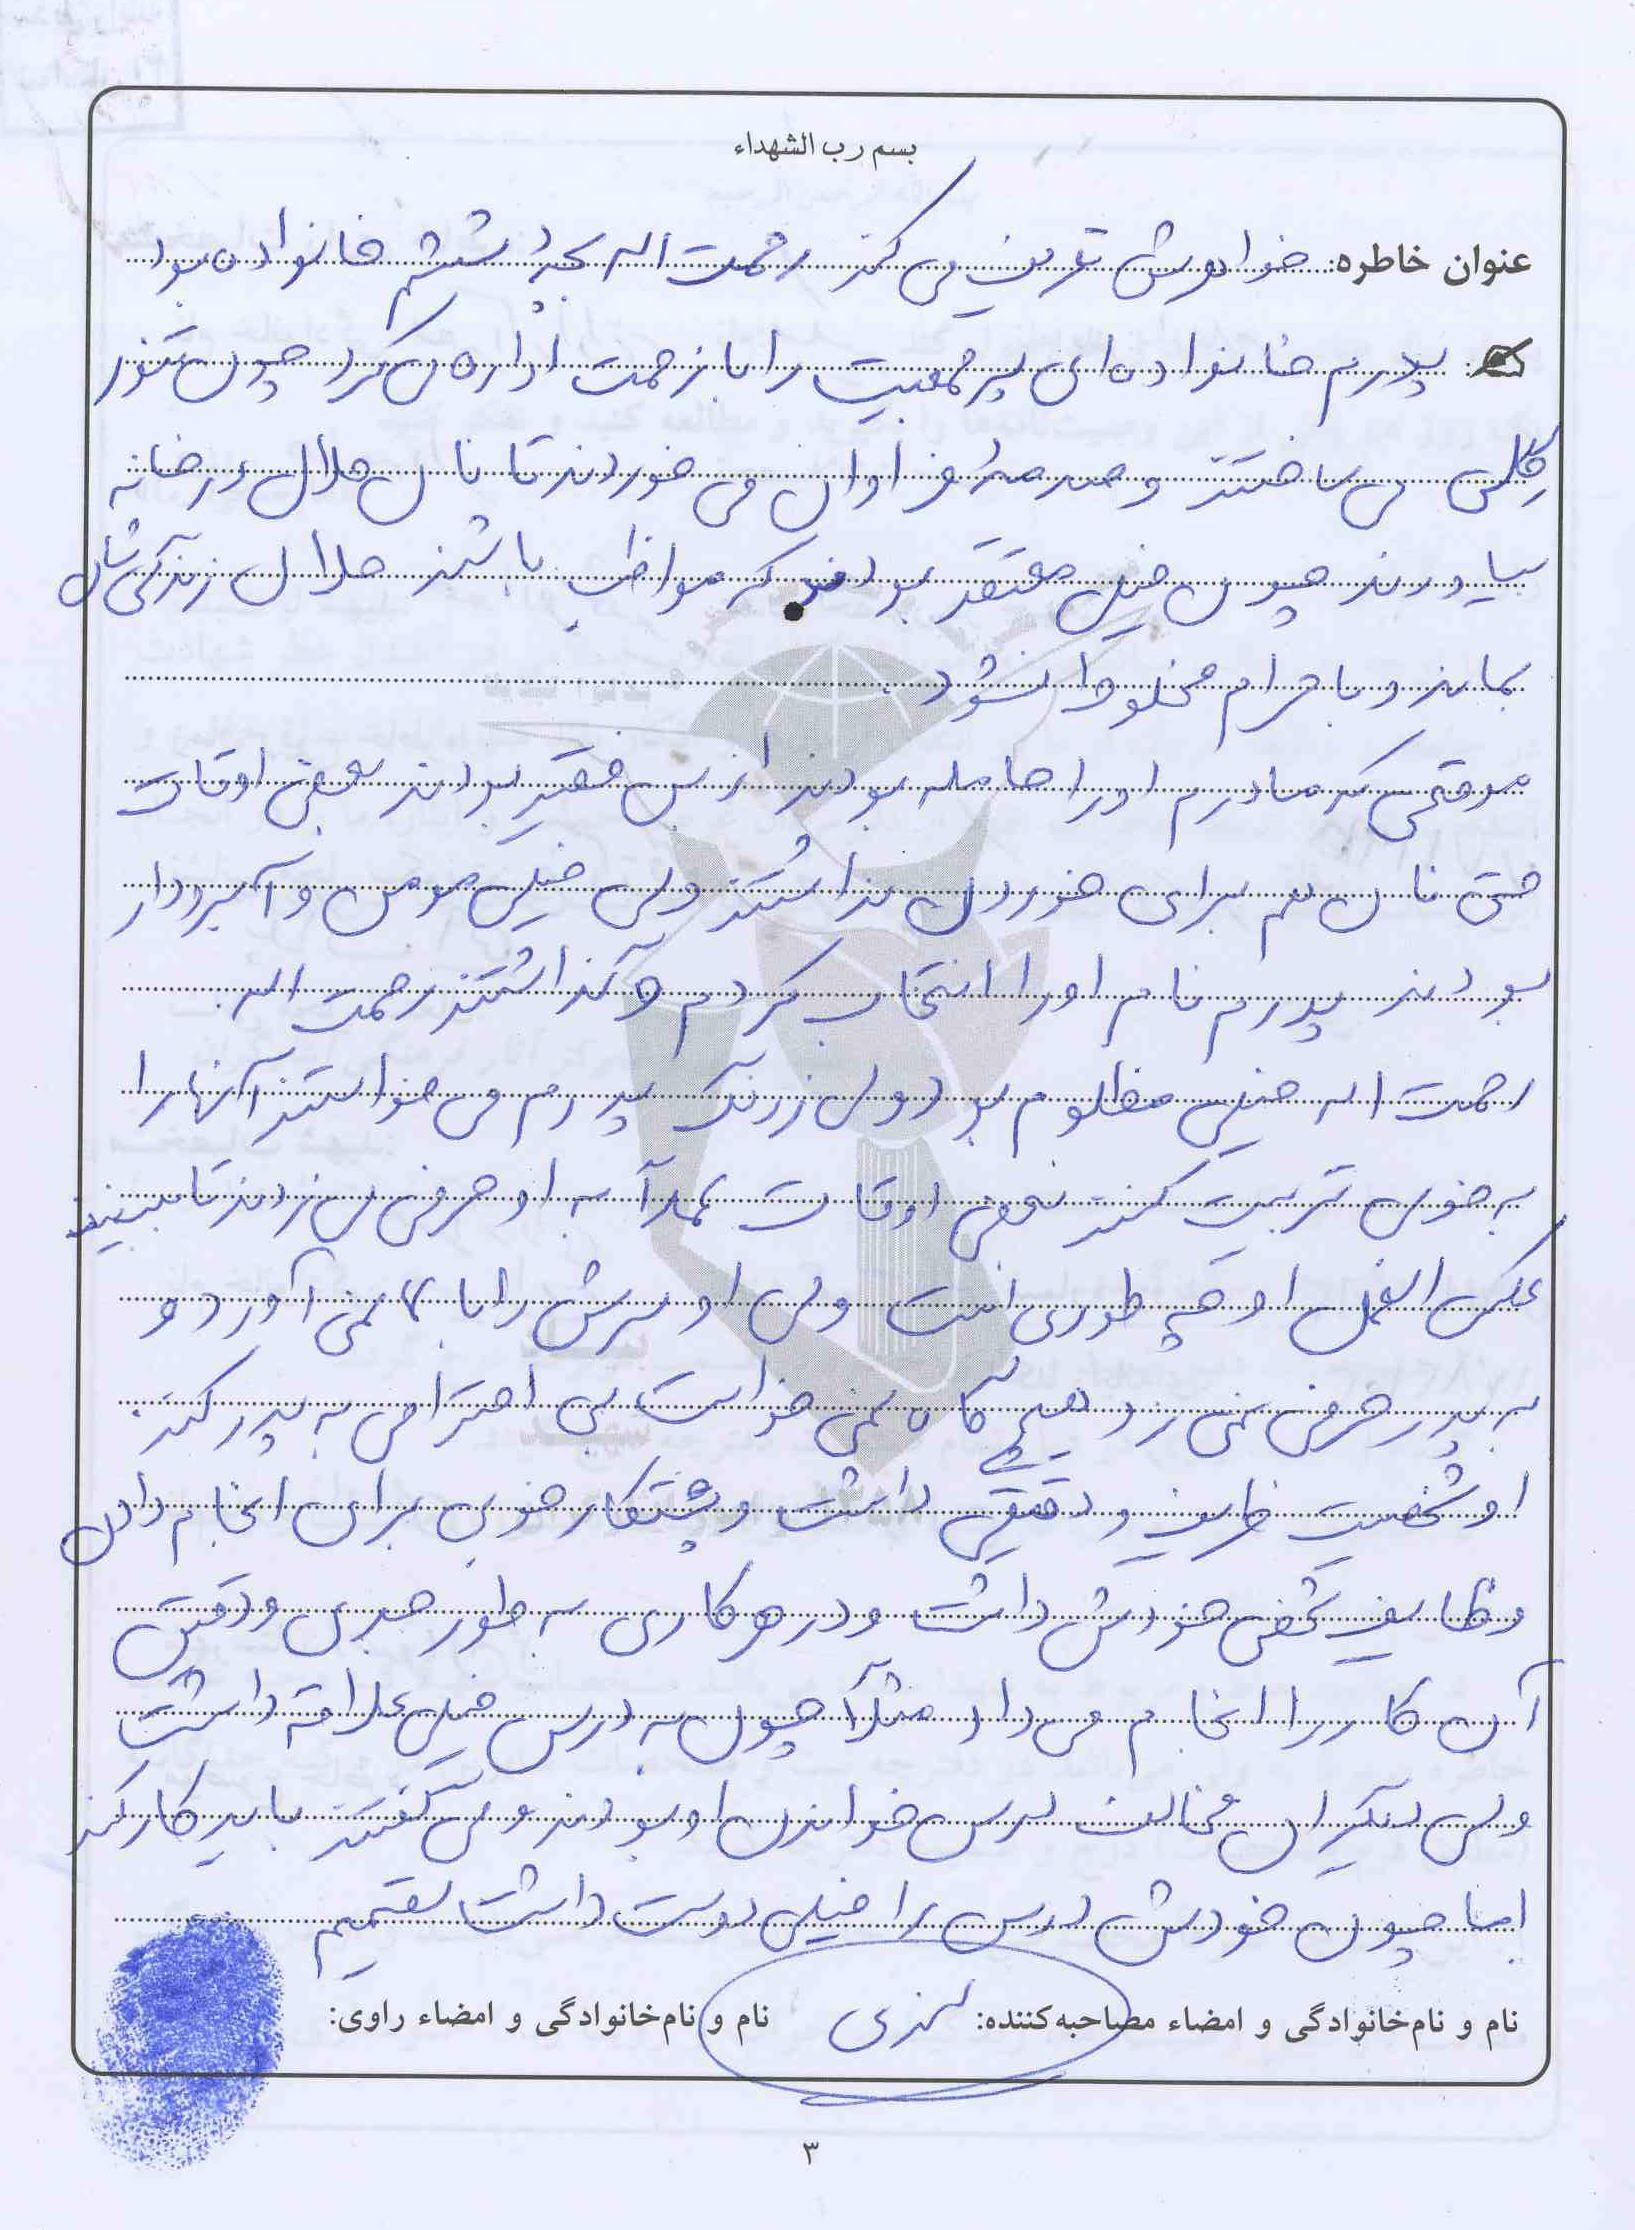 بسم رب الشهداء
عنوان خاطره: خواهرش تعریف می کند رحمت اله بچهٔ ششم خانواده بود
پدرم خانواده ای پر جمعیت را با زحمت اداره می کرد چون تنور
گلی می ساختند و صدمهٔ فراوان می خوردند تا نان حلال در خانه
بیاورند چون خیلی معتقد بودند که مواظب باشند حلال زندگی شان
بماند و با حرام مخلوط نشود.
موقعی که مادرم او را حامله بودند از بس فقیر بودند بعضی اوقات
حتی نان هم برای خوردن نداشتند ولی خیلی مومن و آبرودار
بودند پدرم نام او را انتخاب کردم و گذاشتند رحمت اله.
رحمت اله خیلی مظلوم بود ولی زرنگ پدرم می خواستند آنها را
به خوبی تربیت کنند بعضی اوقات عمداً به او حرفی می زدند تا ببینند
عکس العمل او چه طوری است ولی او سرش را بالا نمی آورد و
به پدر حرفی نمی زد و هیچ گاه نمی خواست بی احترامی به پدر کند.
او شخصیت ظریف و دقیقی داشت و پشتکار خوبی برای انجام دادن
وظایف شخصی خودش داشت و در هر کاری به طور جدی و دقیق
آن کار را انجام می داد مثلاً چون به درس خیلی علاقه داشت
ولی دیگران مخالف درس خواندن او بودند و می گفتند باید کار کند
اما چون خودش درس را خیلی دوست داشت تصمیم
نام و نام‌خانوادگی و امضاء مصاحبه‌کننده: نام و نام‌خانوادگی و امضاء راوی:
۳